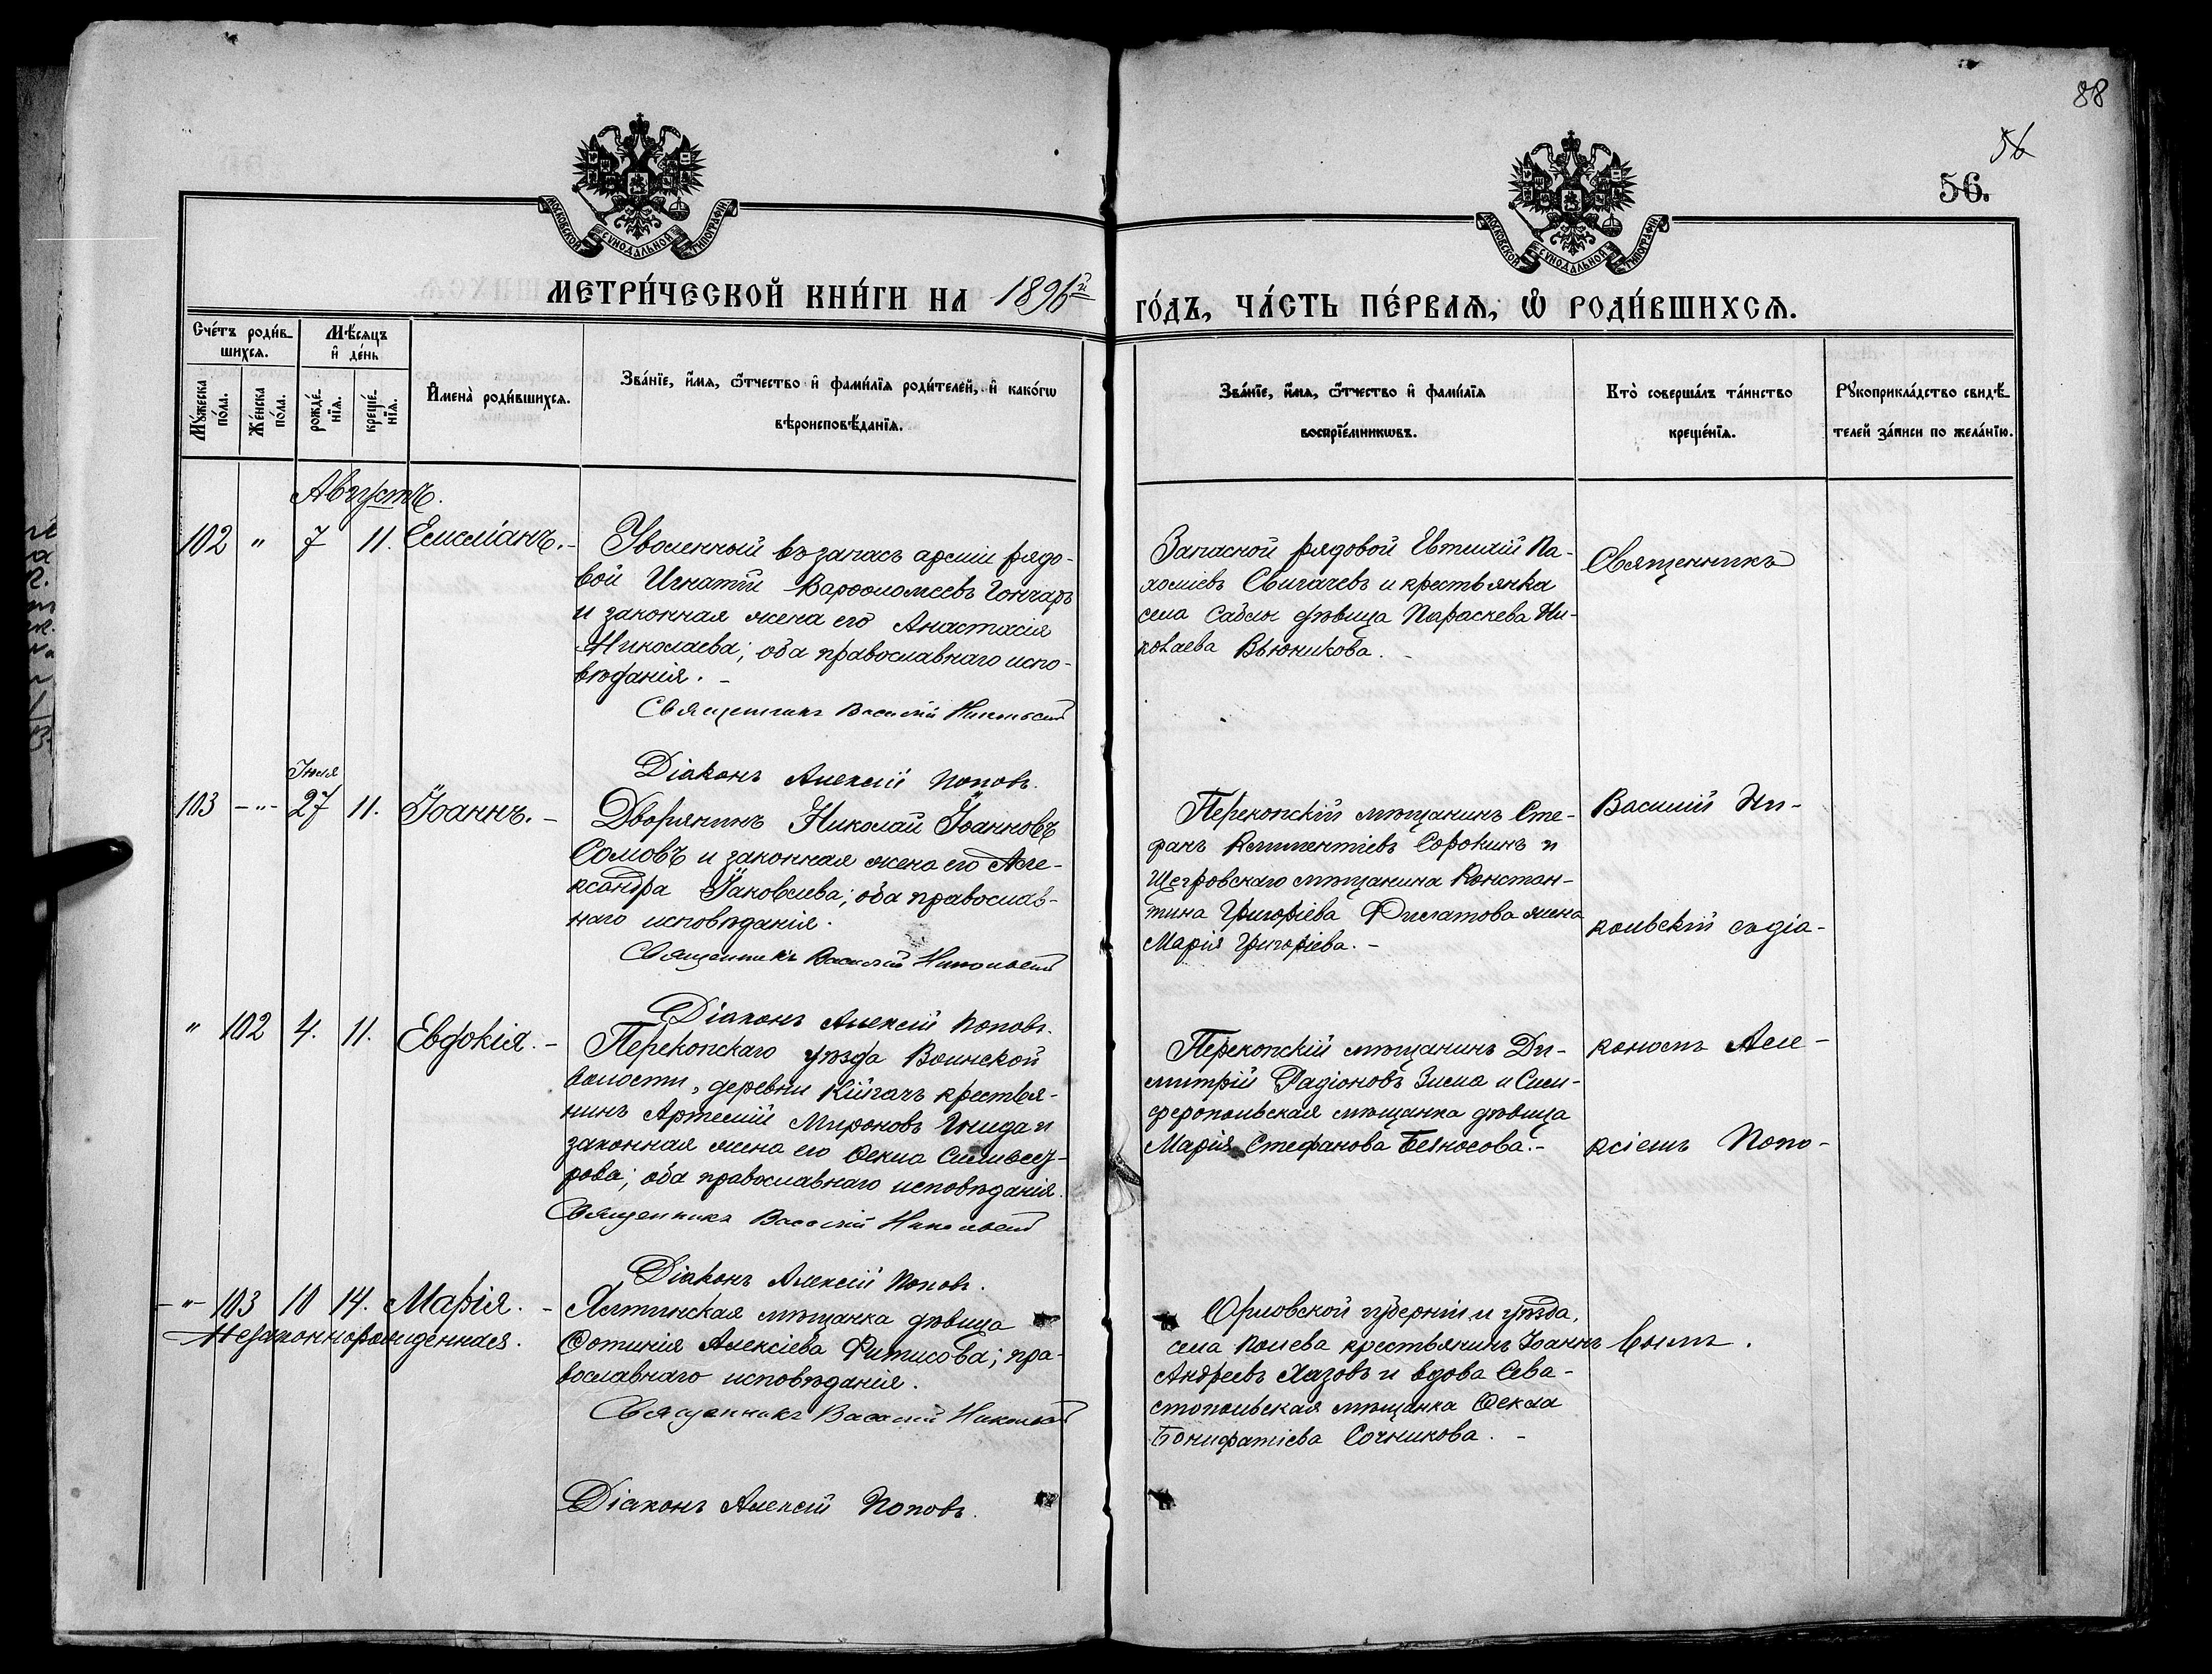 88
56
56.
МОСКОВСКОЙ СѴНОДАЛЬНОЙ ТИПОГРАФІИ
МОСКОВСКОЙ СѴНОДАЛЬНОЙ ТИПОГРАФІИ
МЕТРИ́ЧЕСКОЙ КНИ́ГИ НА 1896й
ГО́ДЪ, ЧА́СТЬ ПЕ́РВАѦ, Ѿ РОДИ́ВШИХСѦ.
Сче́тъ роди́в-
шихсѧ.
Мѣ́сѧцъ
и҆ де́нь
Мꙋ́жеска
по́ла.
Же́нска
по́ла.
рожде́-
нїѧ.
креще́-
нїѧ.
И҆мена̀ роди́вшихсѧ.
Зва́нїе, и҆́мѧ, ѻ҆́тчество и҆ фами́лїѧ роди́телей, и҆ како́гѡ
вѣроисповѣ́данїѧ.
Зва́нїе, и҆́мѧ, ѻ҆́тчество и҆ фами́лїѧ
воспрїе́мникѡвъ.
Кто̀ соверша́лъ та́инство
креще́нїѧ.
Рꙋкоприкла́дство свидѣ́-
телей за́писи по жела́нїю.
Августъ.
102 " 7 11. Емеліанъ. -
Уволенный въ запасъ арміи рядо-
вой Игнатій Варѳоломеевъ Гончаръ
и законная жена его Анастасія
Николаева; оба православнаго испо-
вѣданія. -
Священникъ Василій Никольскій
Діаконъ Алексій Поповъ.
Запасной рядовой Евтихій Па-
хоміевъ Свигачевъ и крестьянка
села Саблы дѣвица Параскева Ни-
колаева Вьюникова. -
Священникъ
Іюля
103 - " - 27 11. Іоаннъ. -
Дворянинъ Николай Іоанновъ
Сомовъ и законная жена его Але-
ксандра Іаковлева; оба православ-
наго исповѣданія.
Священникъ Василій Никольскій
Діаконъ Алексій Поповъ.
Перекопскій мѣщанинъ Сте-
фанъ Климентіевъ Сорокинъ и
Щегровскаго мѣщанина Констан-
тина Григоріева Филатова жена
Марія Григоріева. -
Василій Ни-
кольскій съ діа-
" 102 4. 11. Евдокія. -
Перекопскаго уѣзда Воинской
волости, деревни Кійгачъ крестья-
нинъ Артемій Мироновъ Гнида и
законная жена его Ѳекла Сильвест-
рова; оба православнаго исповѣданія.
Священникъ Василій Никольскій
Діаконъ Алексій Поповъ.
Перекопскій мѣщанинъ Ди-
митрій Радіоновъ Зима и Сим-
феропольская мѣщанка дѣвица
Марія Стефанова Бѣлоносова. -
кономъ Але-
ксіемъ Попо-
- " - 103 10 14. Марія. -
Незаконнорожденная.
Ялтинская мѣщанка дѣвица
Ѳотинія Алексіева Фитисова; пра-
вославнаго исповѣданія.
Священникъ Василій Никольскій
Діаконъ Алексій Поповъ.
Орловской губерніи и уѣзда,
села Полева крестьянинъ Іоаннъ
Андреевъ Хазовъ и вдова Сева-
стопольская мѣщанка Ѳекла
Бонифатіева Сочникова. -
вымъ.